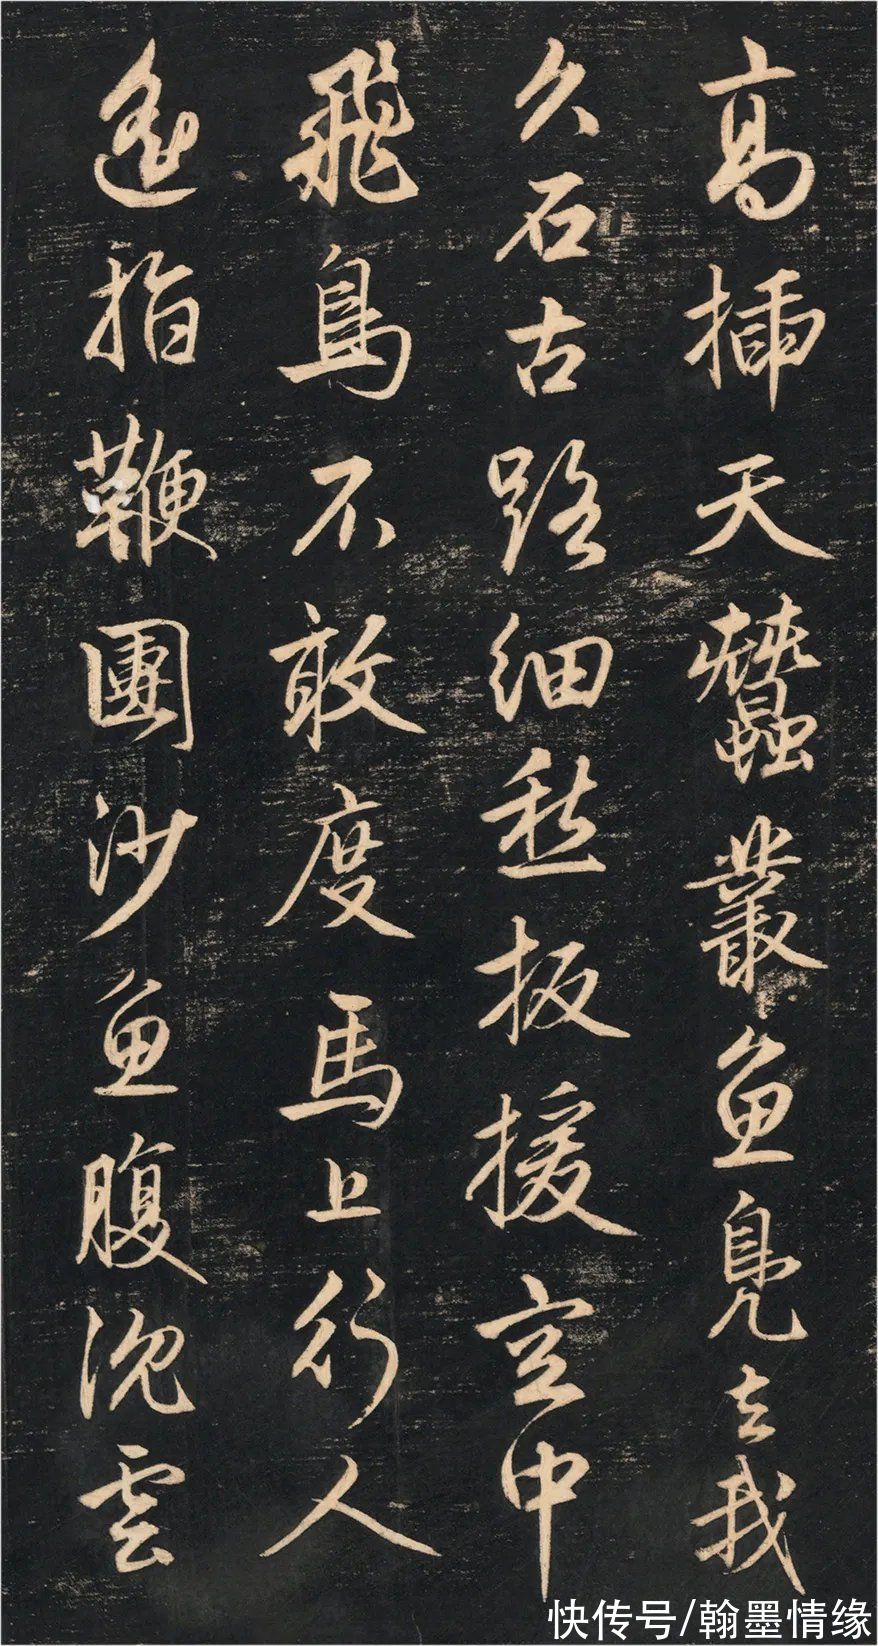 高插天蠶叢魚鳧去我
久石古路细愁扳援空中
飛鳥不敢度馬上行人
遥指鞭團沙魚腹沉雲
快传号/翰墨情缘